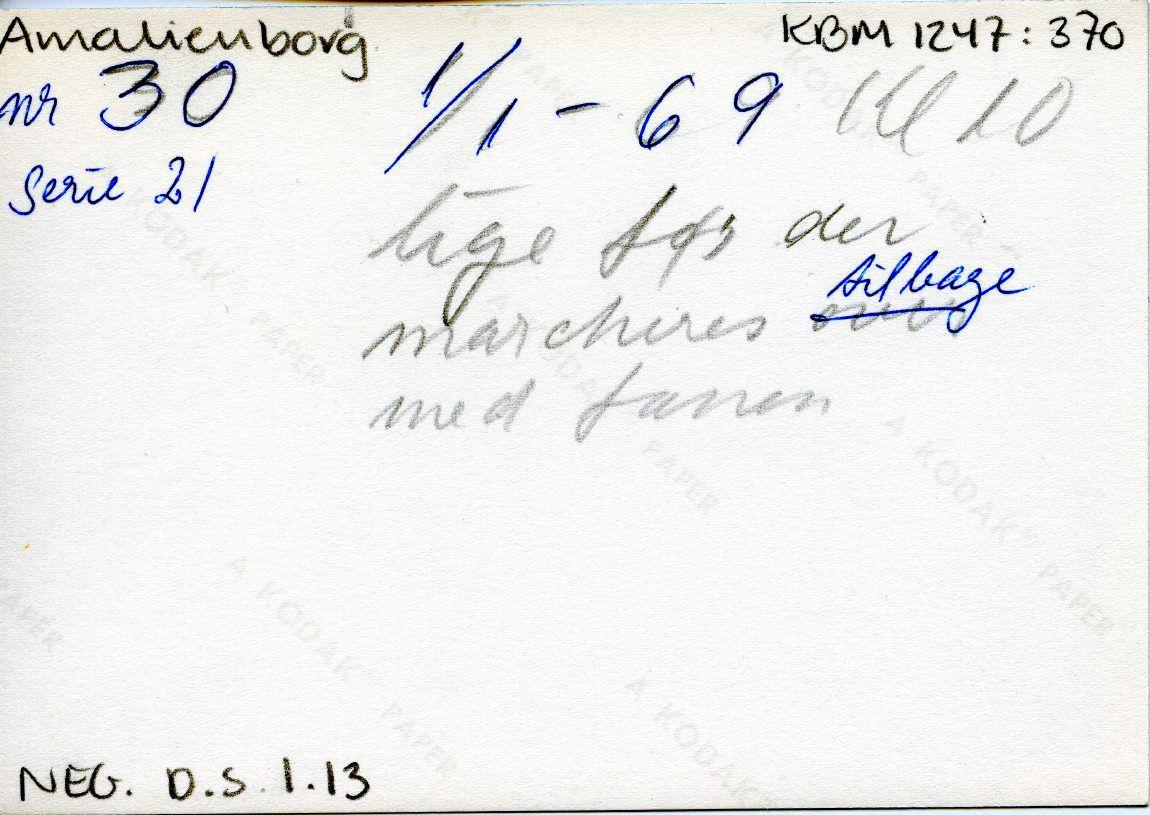 Amalienborg KBM 1247:370
nr 30 1/1 - 69 Kl 10
Serie 21
lige før der
tilbage
marcheres
med fanen
A KODAK PAPER
NEG. D.S. 1.13